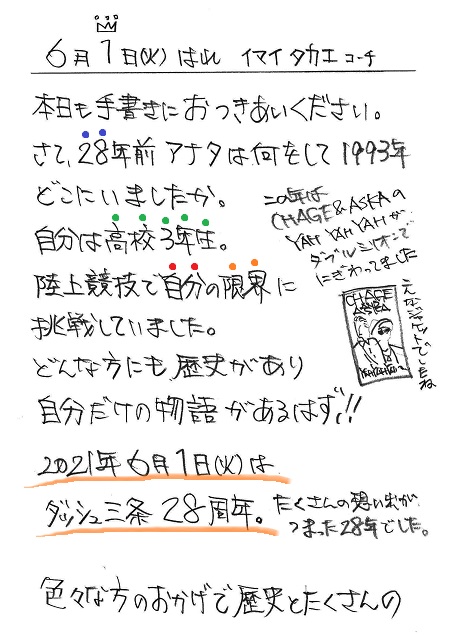 6月1日(火)はれ イマイタカエコーチ
本日も手書きにおつきあいください。
さて、28年前アナタは何をして1993年
どこにいましたか。
この年は
CHAGE&ASKAの
YAH YAH YAHが
ダブルミリオンで
にぎわってました
自分は高校3年生。
陸上競技で自分の限界に
挑戦していました。
CHAGE
ASKA
YAHYAHYAH
えがジャケットでしたね
どんな方にも歴史があり
自分だけの物語があるはず!!
2021年6月1日(火)は
ダッシュ三条28周年。
たくさんの想い出が
つまった28年でした。
色々な方のおかげで歴史とたくさんの